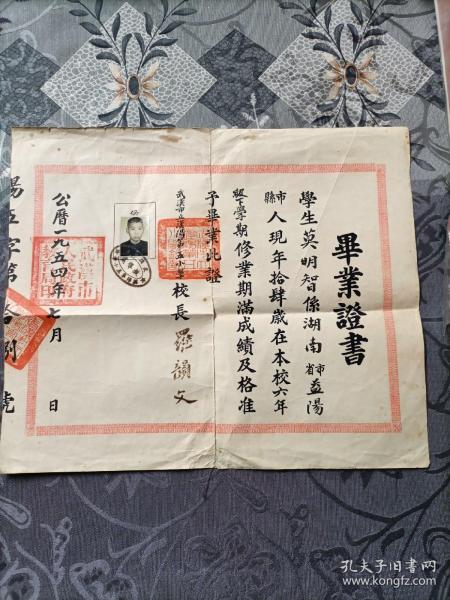 畢業證書
學生莫明智係湖南省市益陽
縣市人現年拾肆歲在本校六年
級下學期修業期滿成績及格准
予畢業此證
校長 羅韻文
公曆一九五四年七月 日
號
孔夫子旧书网
www.kongfz.com